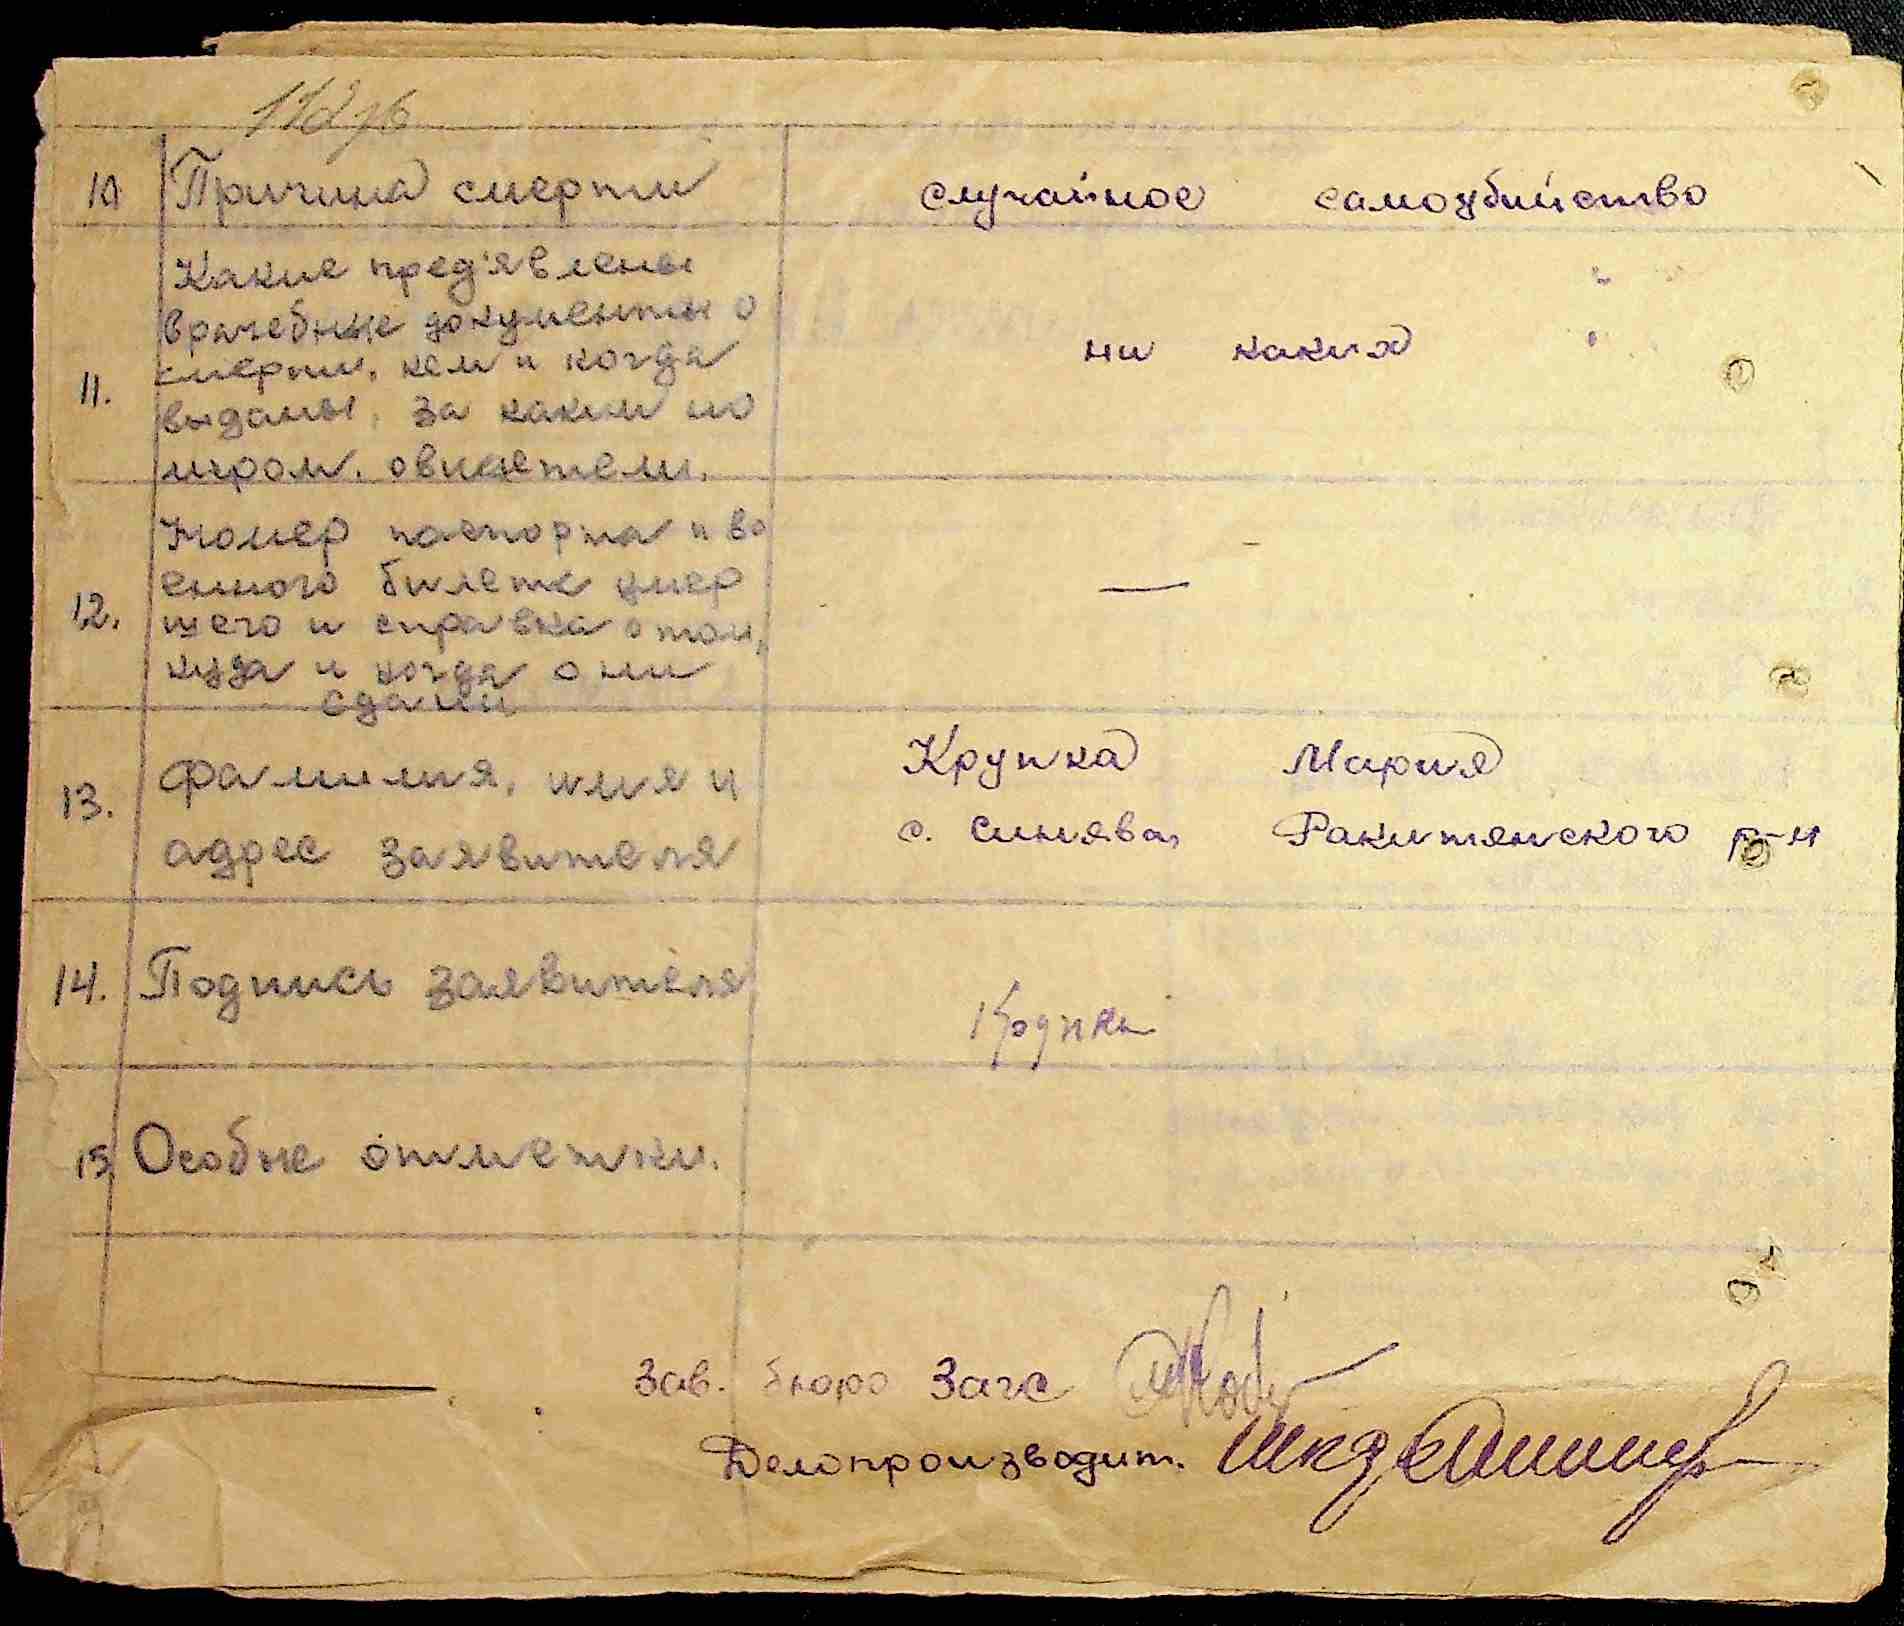 10 Причина смерти случайное самоубийство
Какие пред'явлены
врачебные документы о
смерти, кем и когда ни каких
11. выданы, за каким но
мером. свидетели.
Номер паспорта и во
енного билета умер —
12. шего и справка о том,
куда и когда они
сданы
Крупка Мария
13. Фамилия, имя и
с. Синява, Ракитянского р-н
адрес заявителя
14. Подпись заявителя
Крупка
15. Особые отметки.
Зав. бюро Загс
Делопроизводит.